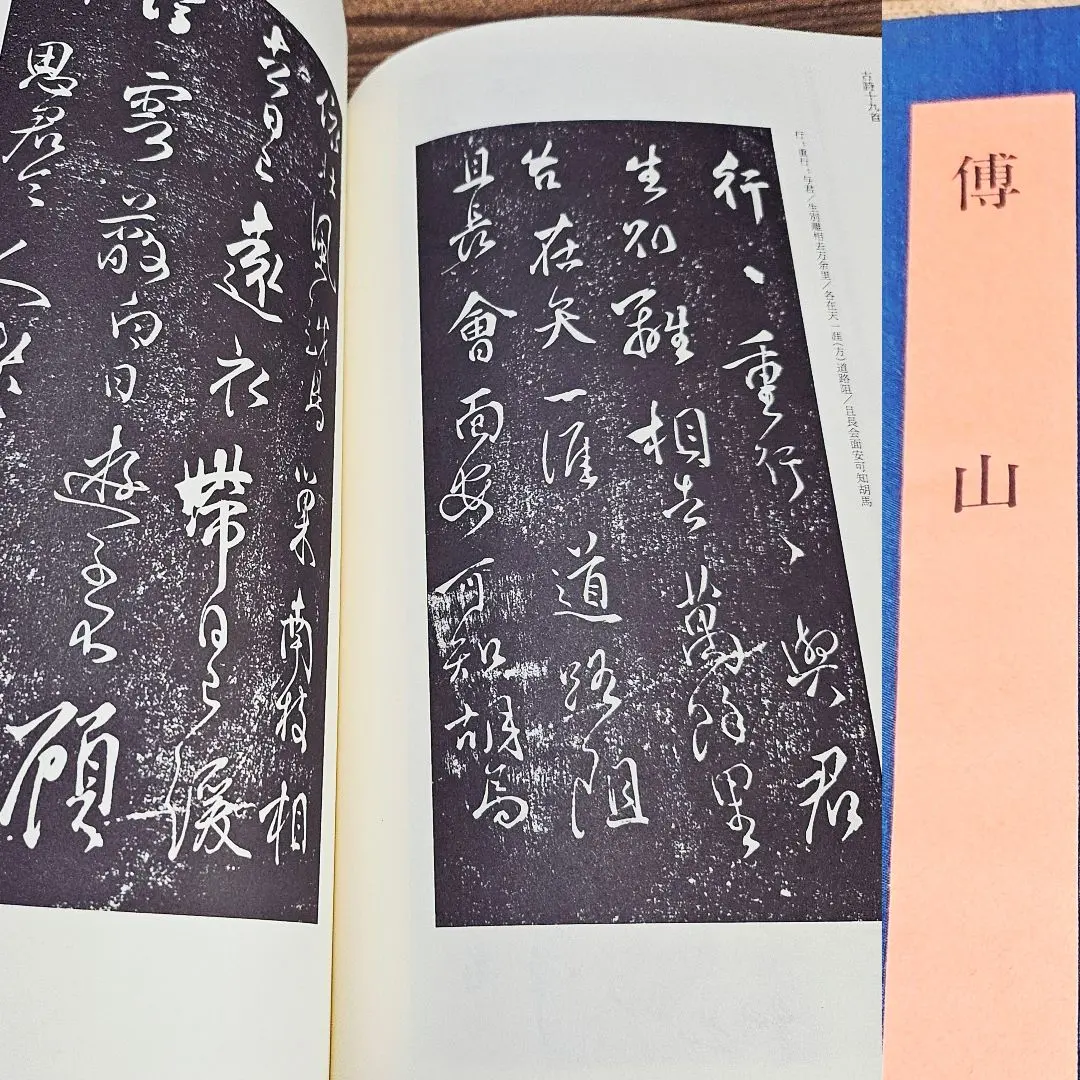 傅山
古詩十九首
行〻重行〻与君/生別離相去万余里/各在天一涯(方)道路阻/且長会面安可知胡馬
行〻重行〻與君
生別離相去萬餘里
各在天一涯道路阻
且長會面安可知胡馬
依北風越鳥巢南枝相
去日已遠衣帶日已緩
雲蔽白日遊子不顧
思君令人